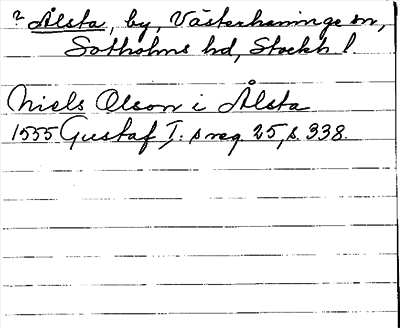 ? Ålsta, by, Västerhaninge sn,
Sotholms hd, Stockh l.
Niels Olson i Ålsta
1555 Gustaf I:s reg. 25, s. 338.